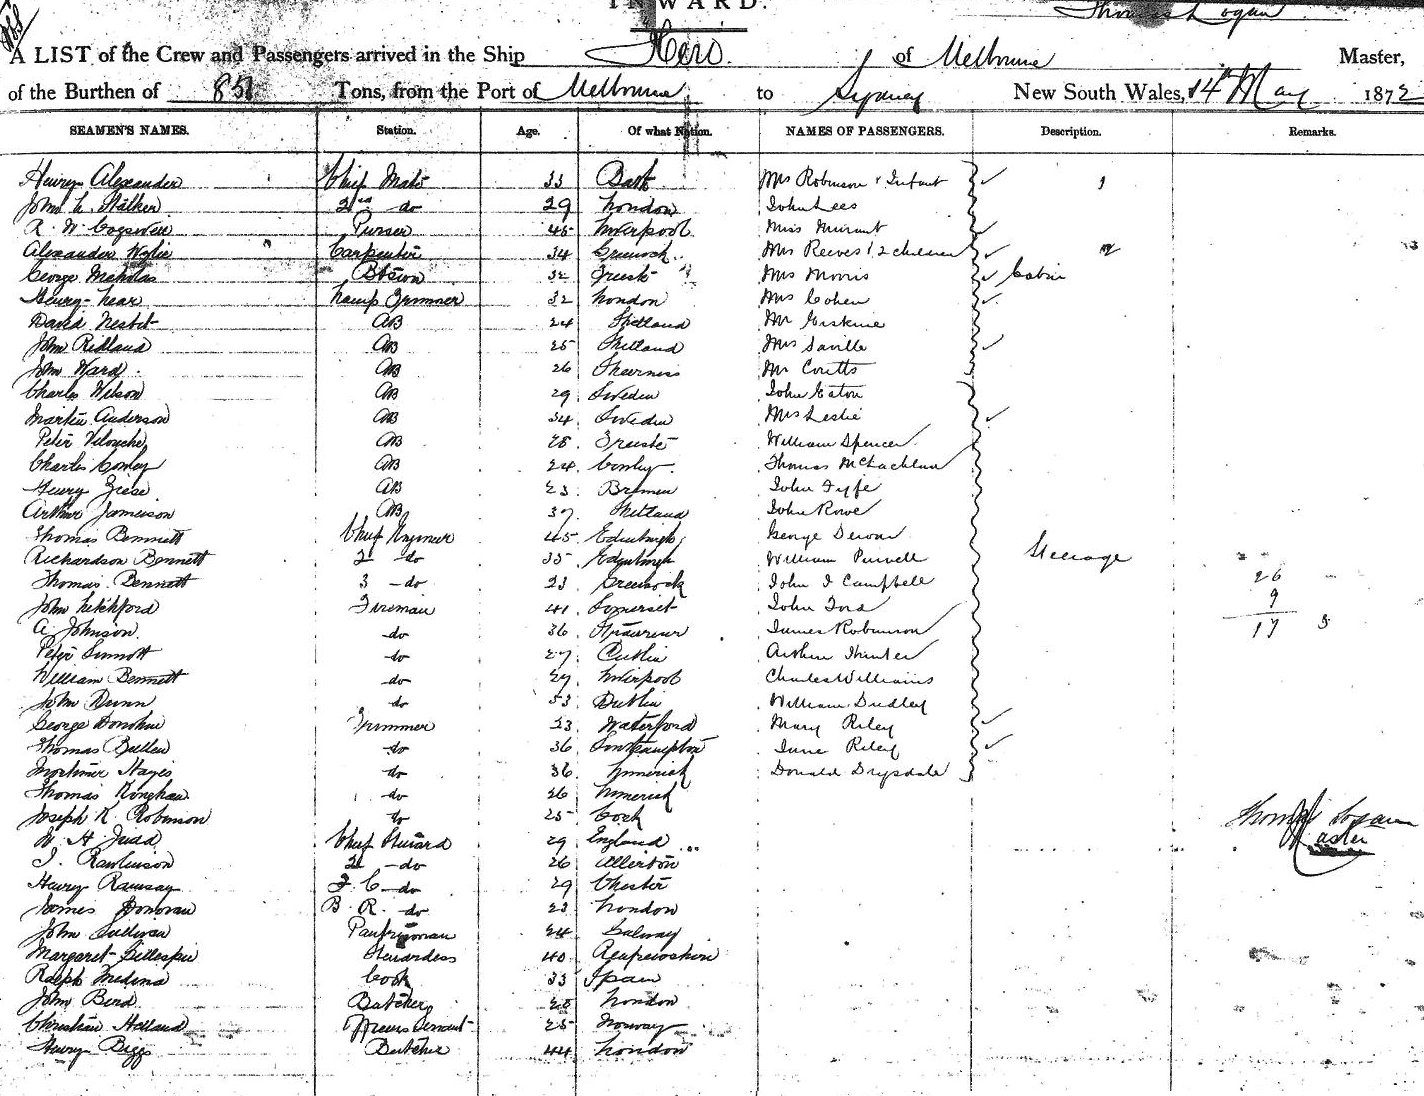 INWARD.
Thomas Logan
A LIST of the Crew and Passengers arrived in the Ship Hero of Melbourne Master,
of the Burthen of Tons, from the Port of Melbourne to Sydney New South Wales, 14th May 1872
SEAMEN'S NAMES. Station. Age. Of what Nation. NAMES OF PASSENGERS. Description. Remarks.
Henry Alexander Chief Mate 33 Mrs Robinson & Infant
John L. Stalker 2nd do 29 London John Lees
Purser 45 Liverpool Miss
Alexander Wylie Carpenter 34 Greenock Mrs Reeves & 2 children
George Nicholas Bosun 32 Mrs Morris Cabin
Henry Lamp Trimmer 32 London Mrs Cohen
David Nesbit AB 24 Shetland Mr Erskine
John Ridland AB 25 Shetland Mrs Saville
John Ward AB 26 Sheerness Mr Coutts
Charles Wilson AB 29 Sweden John Eaton
Martin Anderson AB 34 Sweden Mrs Leslie
Peter AB 28 Trieste William Spencer
Charles Conley AB 24 Thomas McLachlan
Henry Ziese AB 23 Bremen John Fyfe
Arthur Jameison AB 37 Shetland John Rowe
Thomas Bennett Chief Engineer 45 Edinburgh George Dewar
Richardson Bennett 2 do 35 Edinburgh William Purvell Steerage
Thomas Bennett 3 do 23 Greenock John I Campbell 26
John Letchford Fireman 41 Somerset John Ford 9
A. Johnson do 36 James Robinson 17
Peter Sinnott do 27 Dublin Arthur Hunter
William Bennett do 27 Liverpool Charles Williams
John Dunn do 53 Dublin William Dudley
George Donohue Trimmer 23 Waterford Mary Riley
Thomas Bullen do 36 Southampton June Riley
Mortimer Hayes do 36 Limerick Donald Drysdale
Thomas Kinghan do 26 Limerick
Joseph K. Robinson do 25 Cork Thomas Logan
W. H. Judd Chief Steward 29 England Master
J. Rawlinson 2 do 26 Allerton
Henry Ramsay F C do 29 Chester
James Donovan B. R. do 23 London
John Sullivan Pantryman 24 Galway
Margaret Gillespie Stewardess 40
Ralph Medina Cook 33 Spain
John Bird Butcher 28 London
Christian Holland Servant 25 Norway
Henry Biggs Butcher 44 London